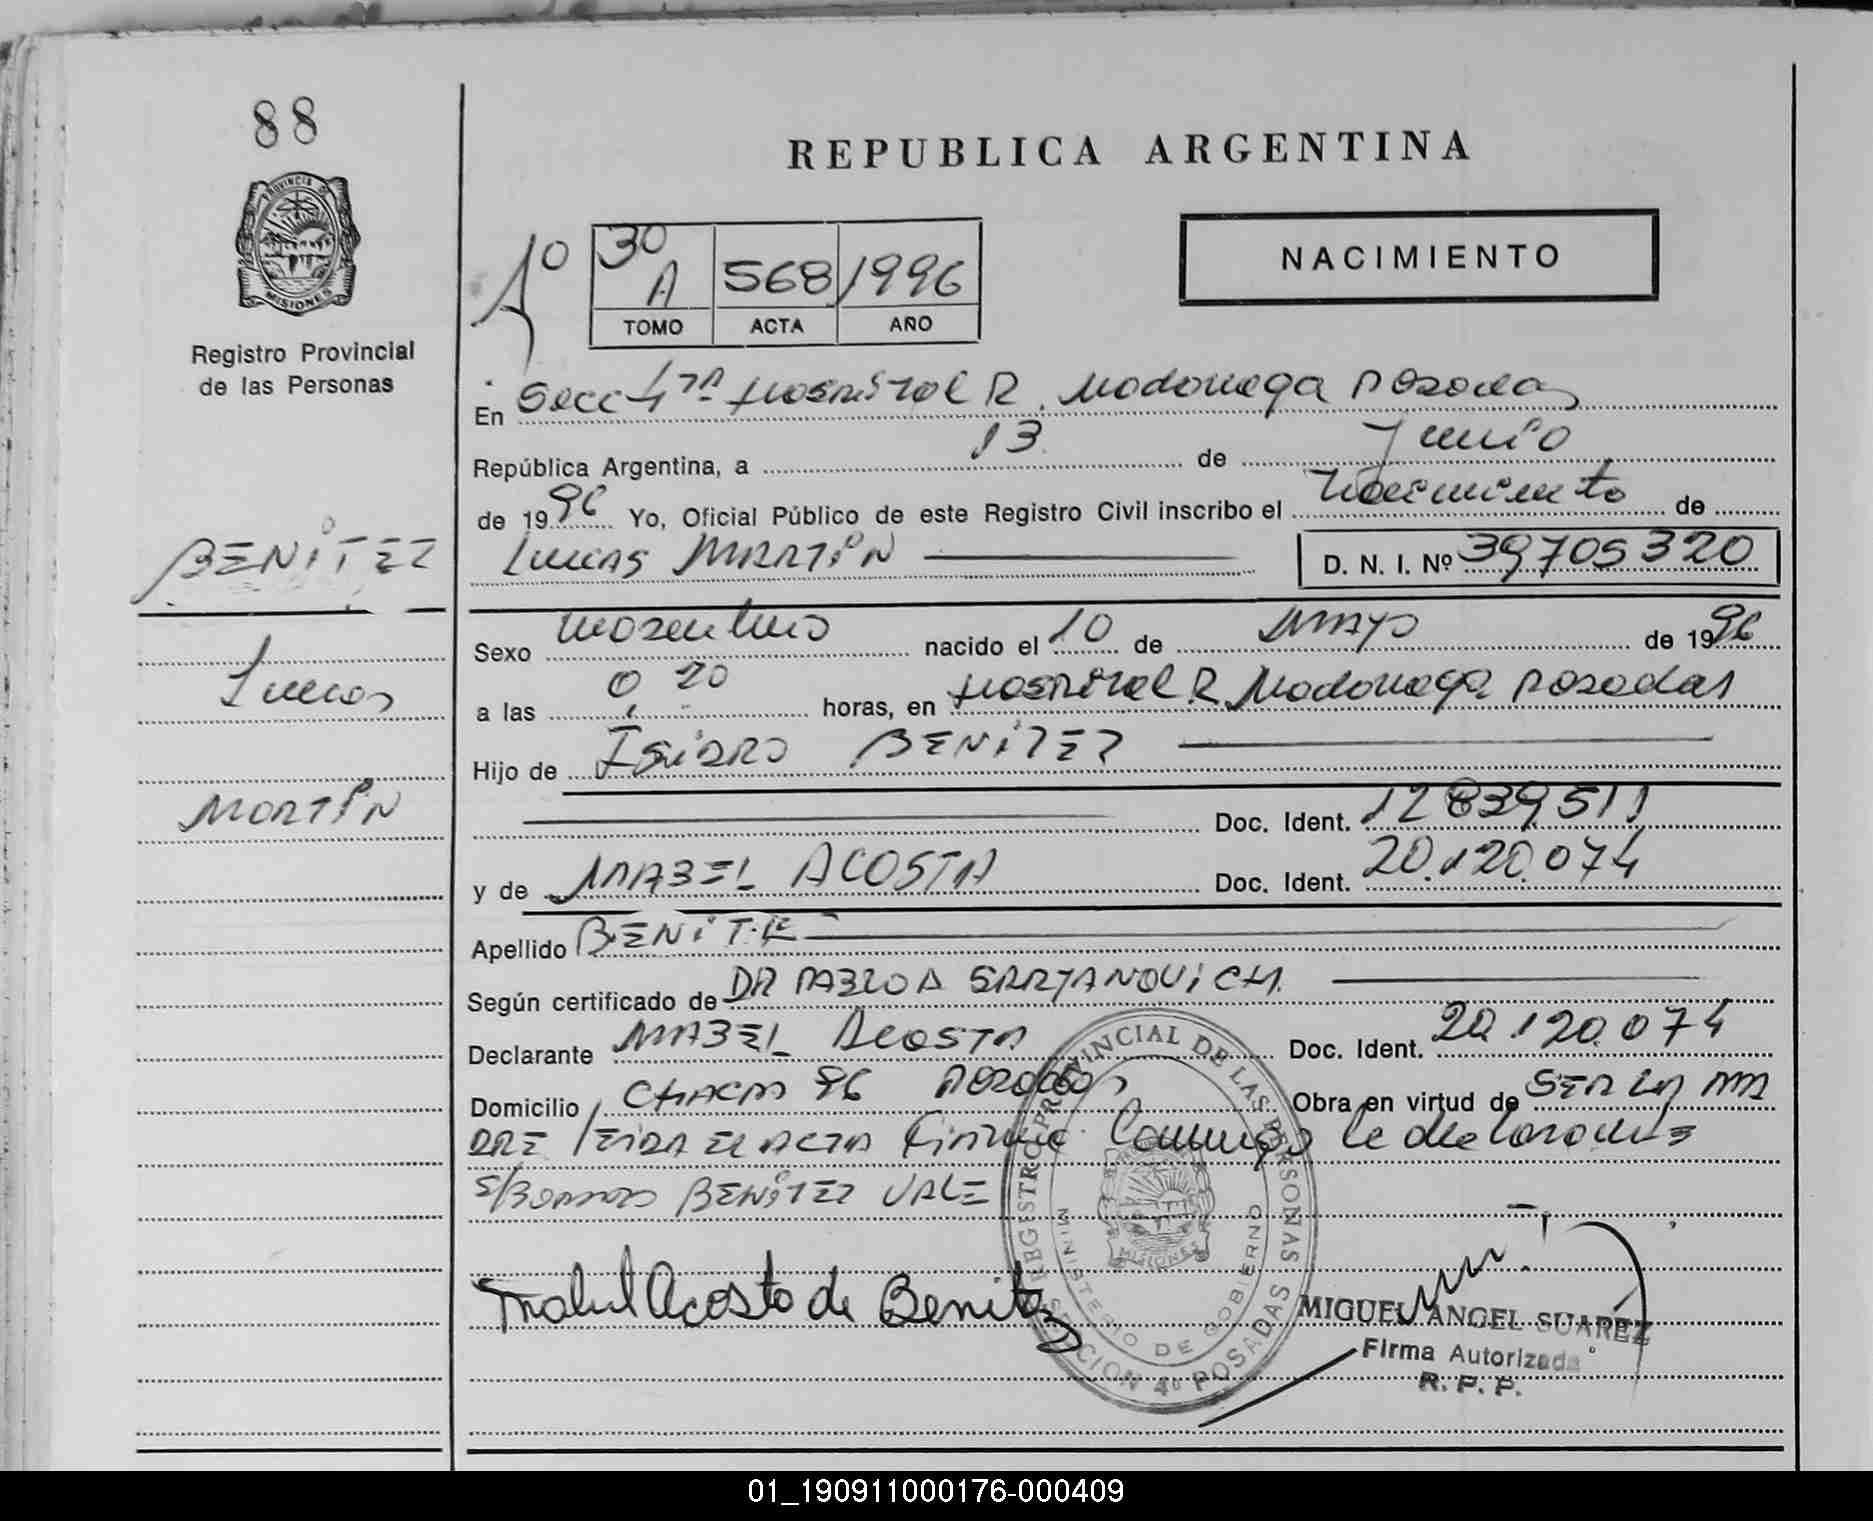 88
REPUBLICA ARGENTINA
PROVINCIA DE
MISIONES
Registro Provincial
de las Personas
NACIMIENTO
1º
30
A 568 1996
TOMO ACTA AÑO
En Secc 4ta Hospital R. Madariaga Posadas
República Argentina, a 13 de Junio
de 1996 Yo, Oficial Público de este Registro Civil inscribo el Nacimiento de
BENITEZ
LUCAS MARTIN
D. N. I. Nº 39705320
Sexo masculino nacido el 10 de MAYO de 1996
Lucas
a las 0 20 horas, en Hospital R. Madariaga Posadas
Hijo de ISIDRO BENITEZ
MARTIN
Doc. Ident. 12839511
y de MABEL ACOSTA Doc. Ident. 20.120.074
Apellido BENITEZ
Según certificado de DR PABLO A
Declarante MABEL ACOSTA Doc. Ident. 20.120.074
Domicilio CHACRA 96 POSADAS Obra en virtud de SER LA MA
DRE LEIDA EL ACTA Firma Conmigo la declarante
S/Borrado BENITEZ VALE
Mabel Acosta de Benitez
REGISTRO PROVINCIAL DE LAS PERSONAS
MINISTERIO DE GOBIERNO
MISIONES
SECCION 4º POSADAS
MIGUEL ANGEL SUAREZ
Firma Autorizada
R. P. P.
01_190911000176-000409